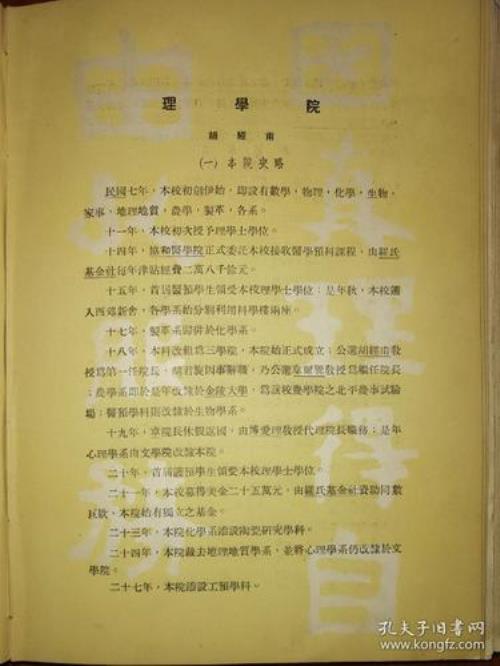 理學院
胡經甫
(一)本院史略
民國七年，本校初創伊始，即設有數學，物理，化學，生物，
家事，地理地質，農學，製革，各系。
十一年，本校初次授予理學士學位。
十四年，協和醫學院正式委託本校接收醫學預科課程，由羅氏
基金社每年津貼經費二萬八千餘元。
十五年，首屆醫預學生領受本校理學士學位；是年秋，本校遷
入西郊新舍，各學系始分別利用科學樓兩座。
十七年，製革系歸併於化學系。
十八年，本科改組爲三學院，本院始正式成立；公選胡經甫敎
授爲第一任院長，胡君旋因事辭職，乃公選韋爾巽敎授爲繼任院長
；農學系即於是年改隸於金陵大學，爲該校農學院之北平農事試驗
場；醫預學科則改隸於生物學系。
十九年，韋院長休假返國，由博愛理敎授代理院長職務；是年
心理學系由文學院改隸本院。
二十年，首屆護預學生領受本校理學士學位。
二十一年，本校募得美金二十五萬元，由羅氏基金社資助同數
巨欵，本院始有獨立之基金。
二十三年，本院化學系添設陶瓷研究學科。
二十四年，本院裁去地理地質學系，並將心理學系仍改隸於文
學院。
二十七年，本院添設工預學科。
因真理得自
由以服務
孔夫子旧書网
www.kongfz.com